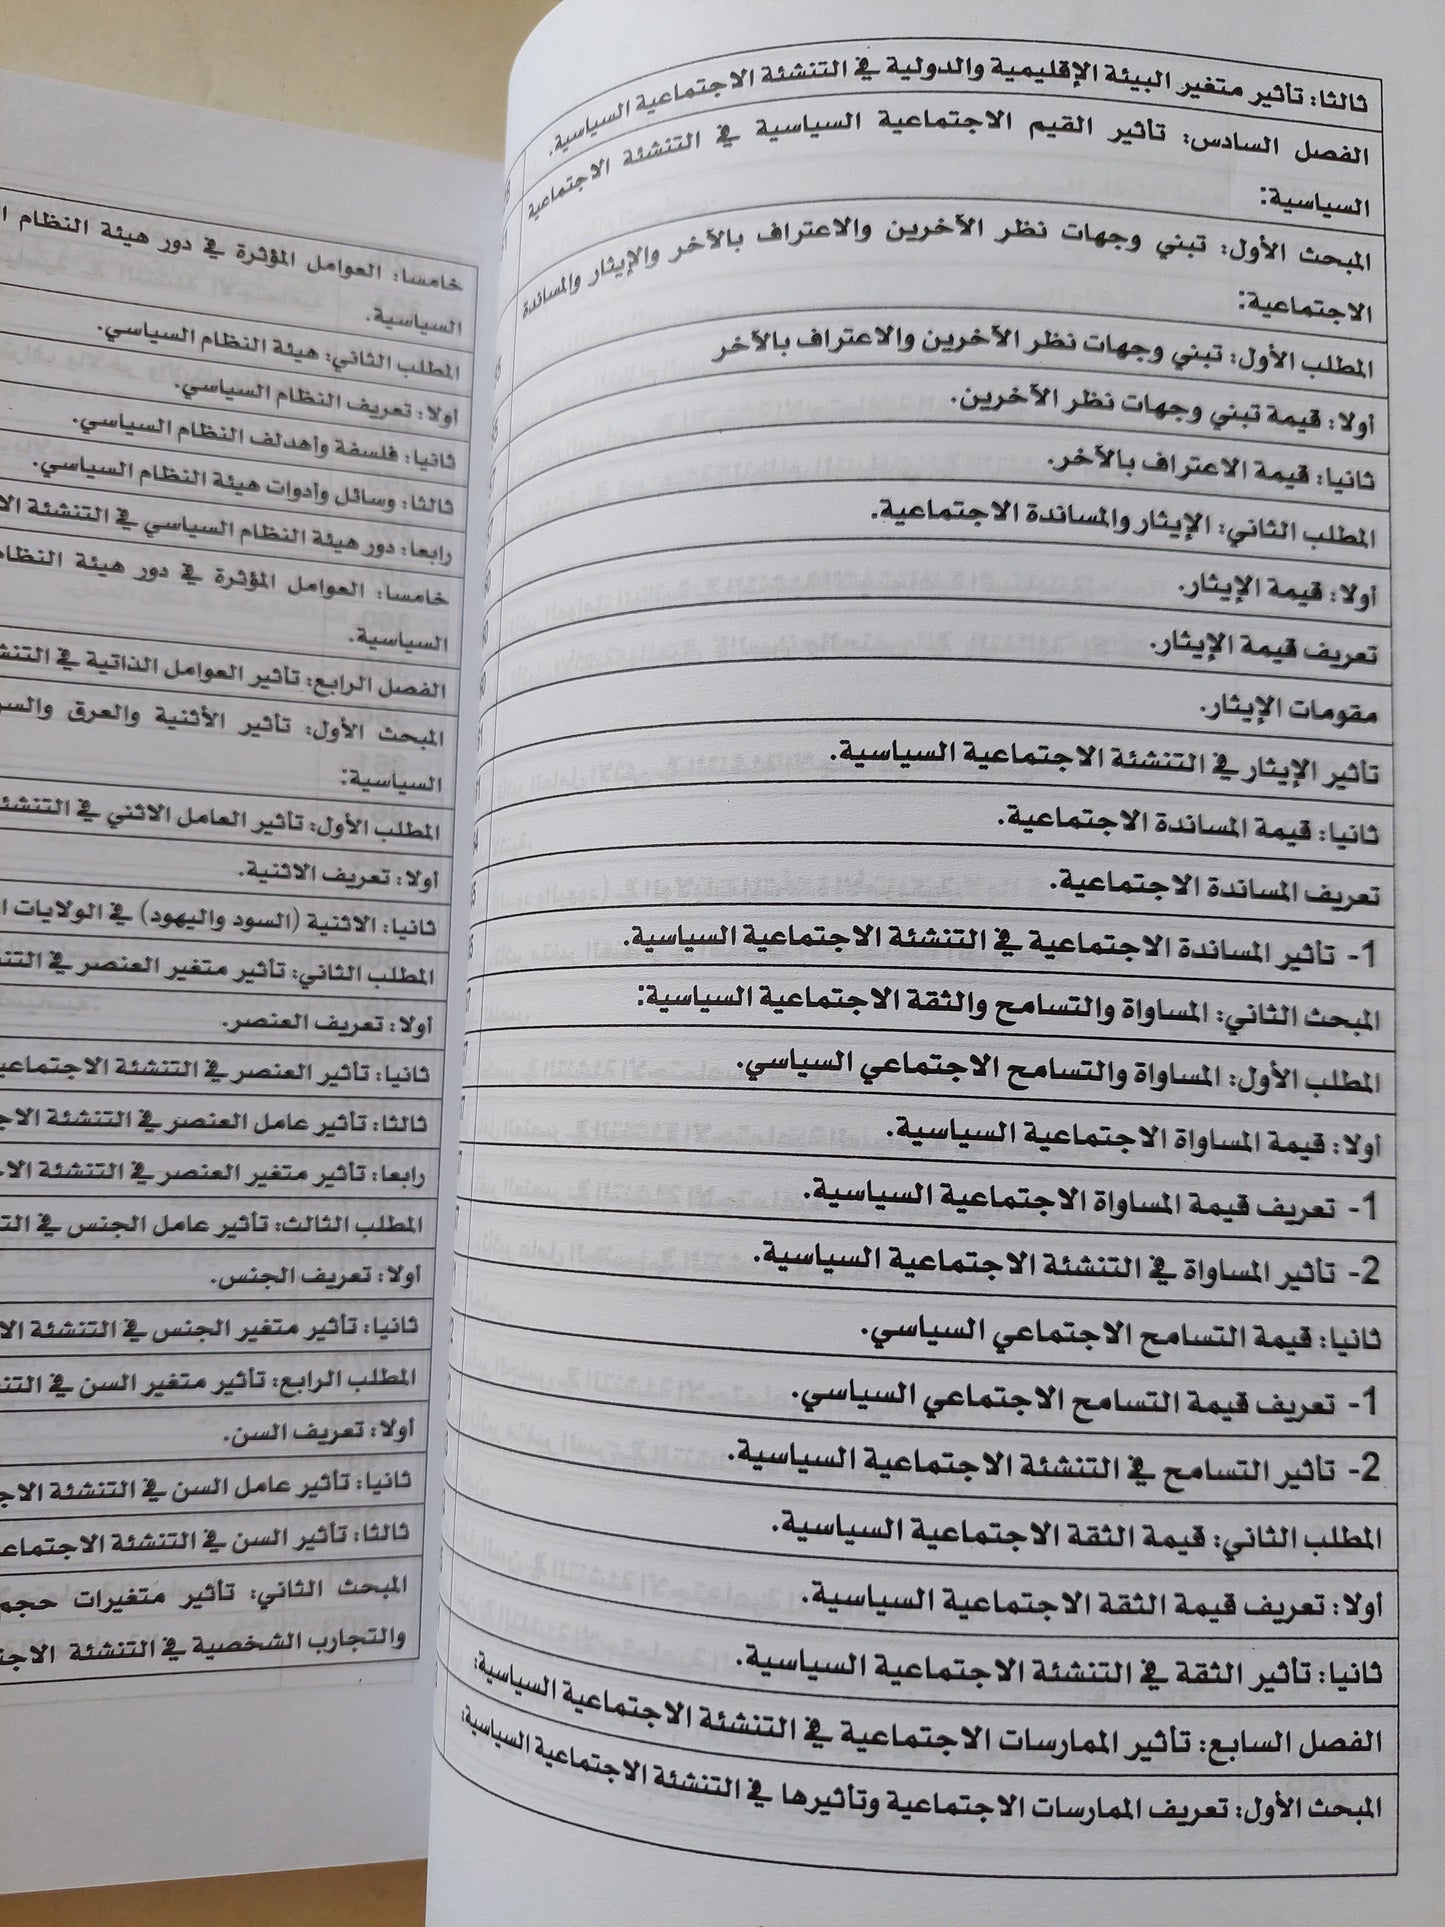 ثالثا: تأثير متغير البيئة الإقليمية والدولية في التنشئة الاجتماعية السياسية.
الفصل السادس: تأثير القيم الاجتماعية السياسية في التنشئة الاجتماعية
السياسية:
المبحث الأول: تبني وجهات نظر الآخرين والاعتراف بالآخر والإيثار والمساندة
الاجتماعية:
المطلب الأول: تبني وجهات نظر الآخرين والاعتراف بالآخر
أولا: قيمة تبني وجهات نظر الآخرين.
ثانيا: قيمة الاعتراف بالآخر.
المطلب الثاني: الإيثار والمساندة الاجتماعية.
أولا: قيمة الإيثار.
تعريف قيمة الإيثار.
مقومات الإيثار.
تأثير الإيثار في التنشئة الاجتماعية السياسية.
ثانيا: قيمة المساندة الاجتماعية.
تعريف المساندة الاجتماعية.
1- تأثير المساندة الاجتماعية في التنشئة الاجتماعية السياسية.
المبحث الثاني: المساواة والتسامح والثقة الاجتماعية السياسية:
المطلب الأول: المساواة والتسامح الاجتماعي السياسي.
أولا: قيمة المساواة الاجتماعية السياسية.
1- تعريف قيمة المساواة الاجتماعية السياسية.
2- تأثير المساواة في التنشئة الاجتماعية السياسية.
ثانيا: قيمة التسامح الاجتماعي السياسي.
1- تعريف قيمة التسامح الاجتماعي السياسي.
2- تأثير التسامح في التنشئة الاجتماعية السياسية.
المطلب الثاني: قيمة الثقة الاجتماعية السياسية.
أولا: تعريف قيمة الثقة الاجتماعية السياسية.
ثانيا: تأثير الثقة في التنشئة الاجتماعية السياسية.
الفصل السابع: تأثير الممارسات الاجتماعية في التنشئة الاجتماعية السياسية:
المبحث الأول: تعريف الممارسات الاجتماعية وتأثيرها في التنشئة الاجتماعية السياسية:
خامسا: العوامل المؤثرة في دور هيئة النظام
السياسية.
المطلب الثاني: هيئة النظام السياسي.
أولا: تعريف النظام السياسي.
ثانيا: فلسفة وأهدلف النظام السياسي.
ثالثا: وسائل وأدوات هيئة النظام السياسي.
رابعا: دور هيئة النظام السياسي في التنشئة
خامسا: العوامل المؤثرة في دور هيئة النظام
السياسية.
الفصل الرابع: تأثير العوامل الذاتية في
المبحث الأول: تأثير الأثنية والعرق
السياسية:
المطلب الأول: تأثير العامل الاثني في
أولا: تعريف الاثنية.
ثانيا: الاثنية (السود واليهود) في الولايات
المطلب الثاني: تأثير متغير العنصر في
أولا: تعريف العنصر.
ثانيا: تأثير العنصر في التنشئة
ثالثا: تأثير عامل العنصر في التنشئة
رابعا: تأثير متغير العنصر في التنشئة
المطلب الثالث: تأثير عامل الجنس في
أولا: تعريف الجنس.
ثانيا: تأثير متغير الجنس في التنشئة
المطلب الرابع: تأثير متغير السن في
أولا: تعريف السن.
ثانيا: تأثير عامل السن في التنشئة
ثالثا: تأثير السن في التنشئة
المبحث الثاني: تأثير متغيرات حجم
والتجارب الشخصية في التنشئة